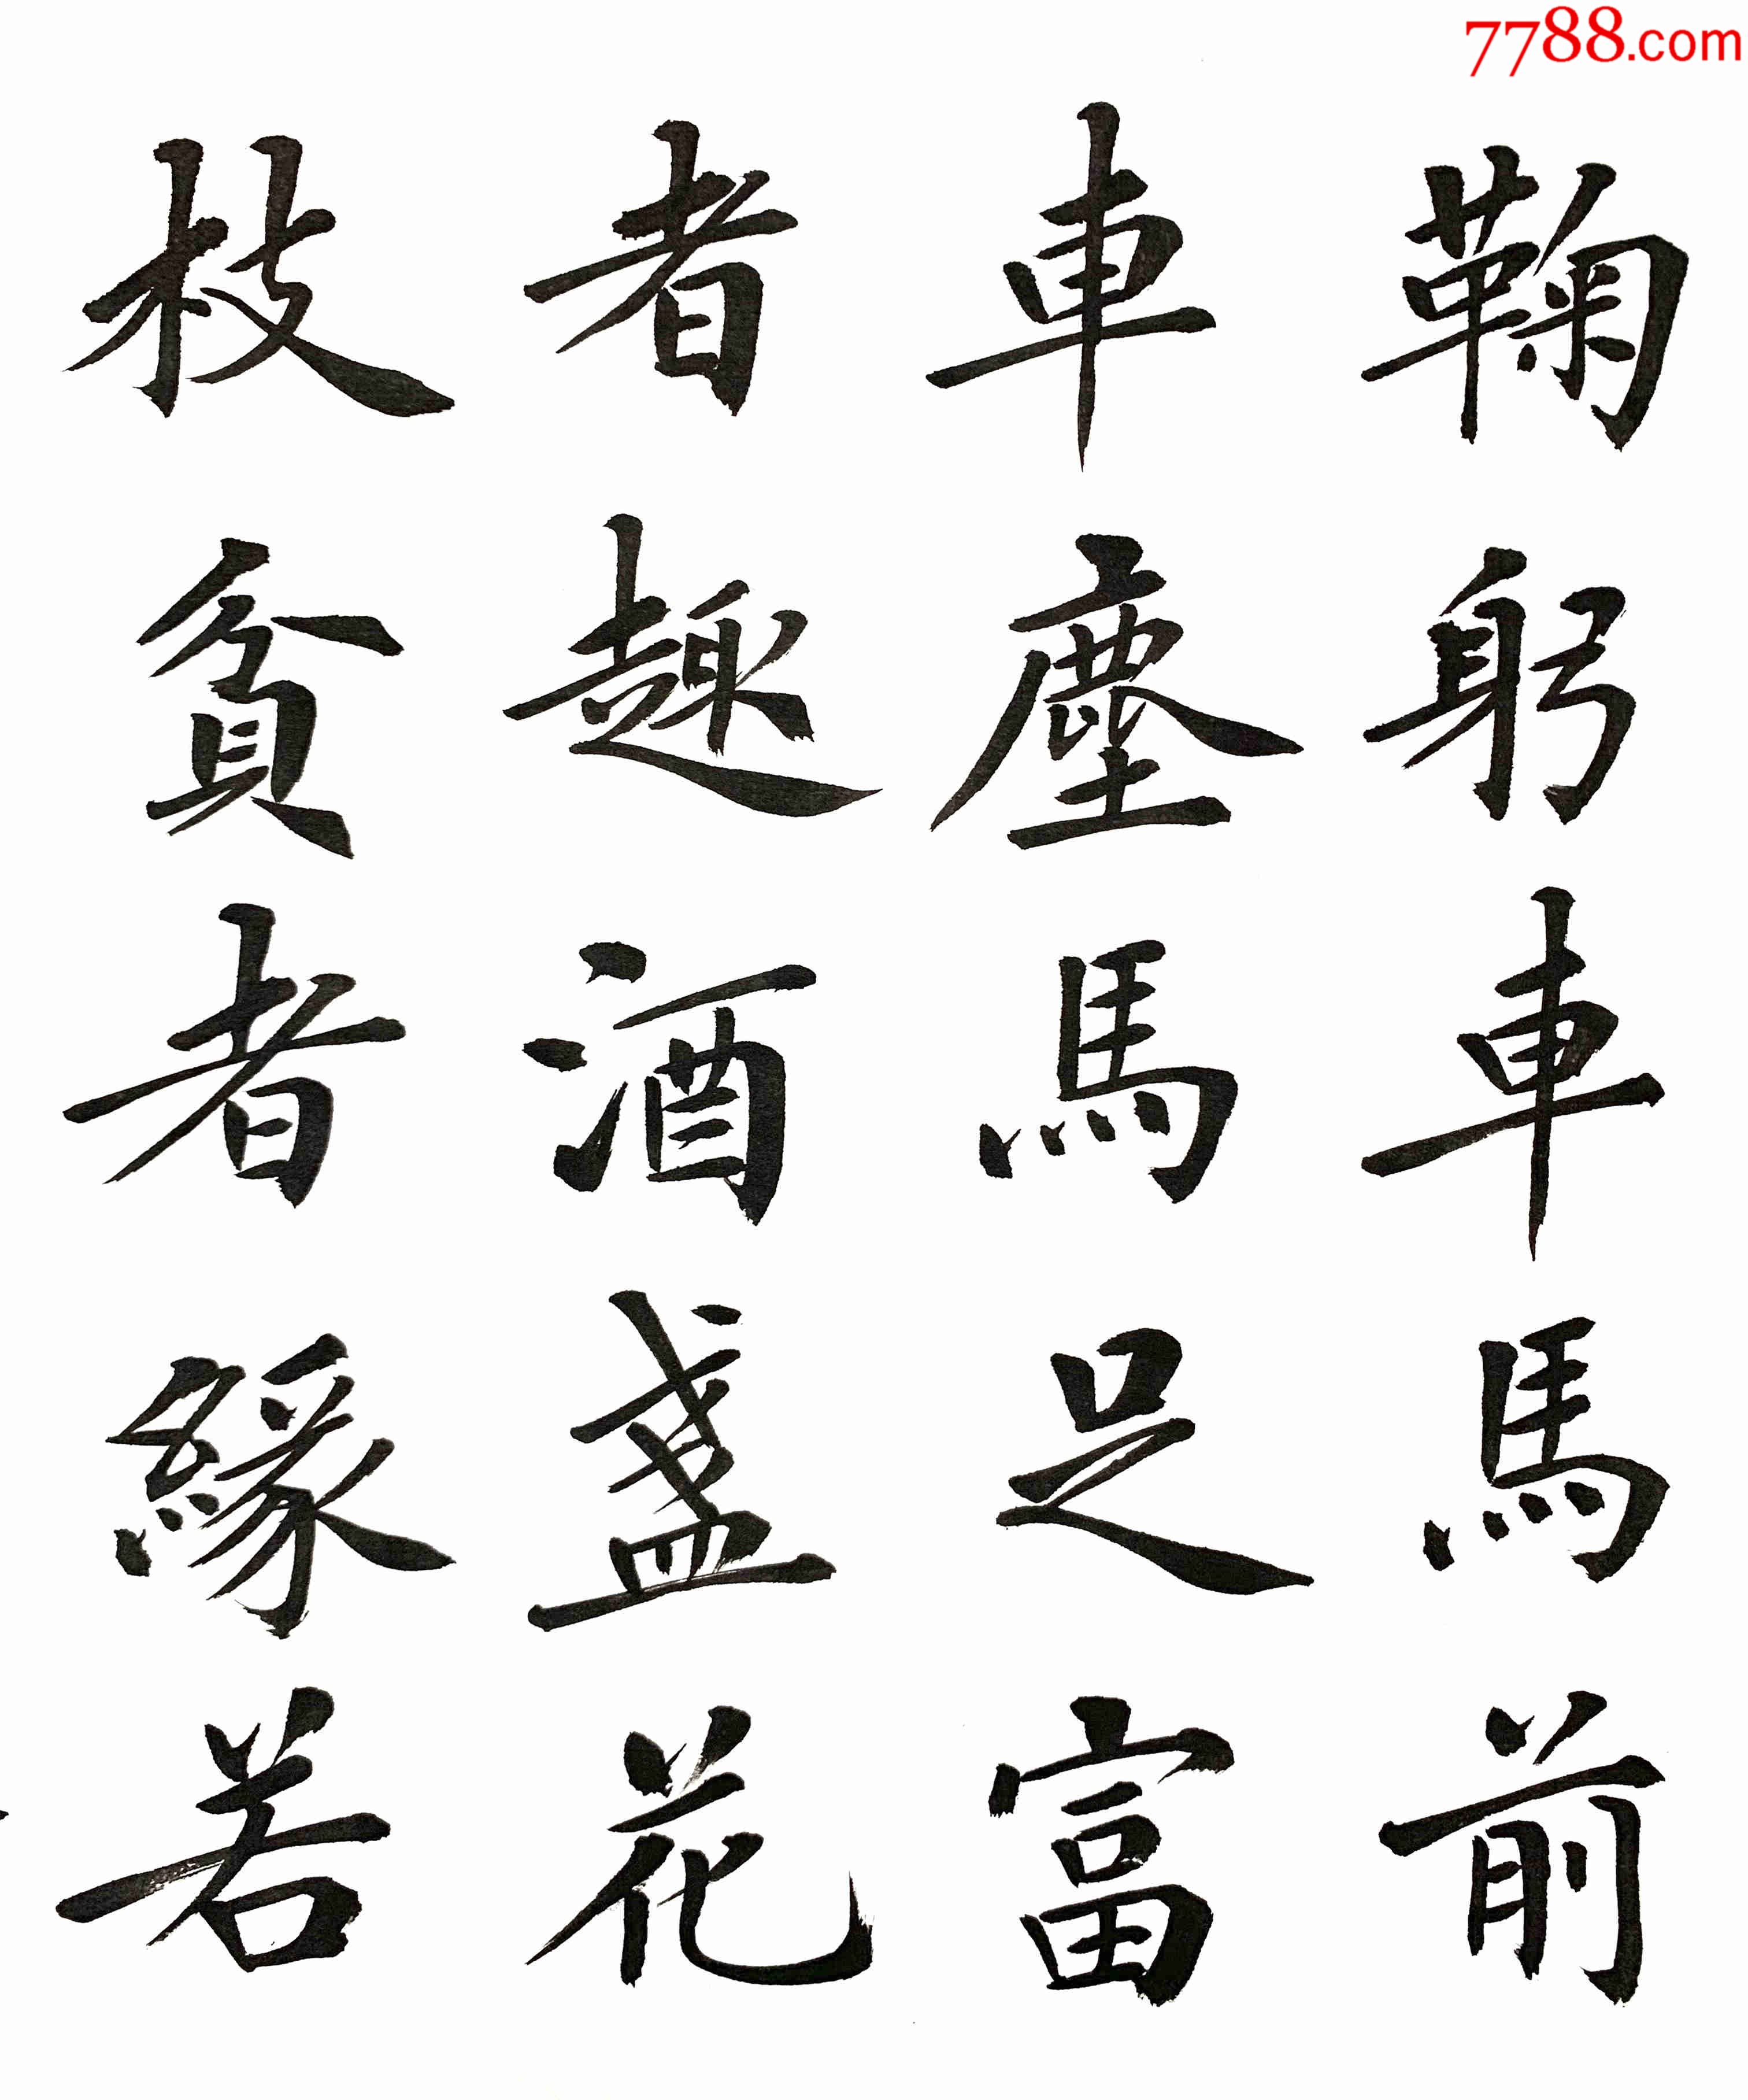 7788.com
鞠躬車馬前
車塵馬足富
者趣酒盞花
枝貧者緣若